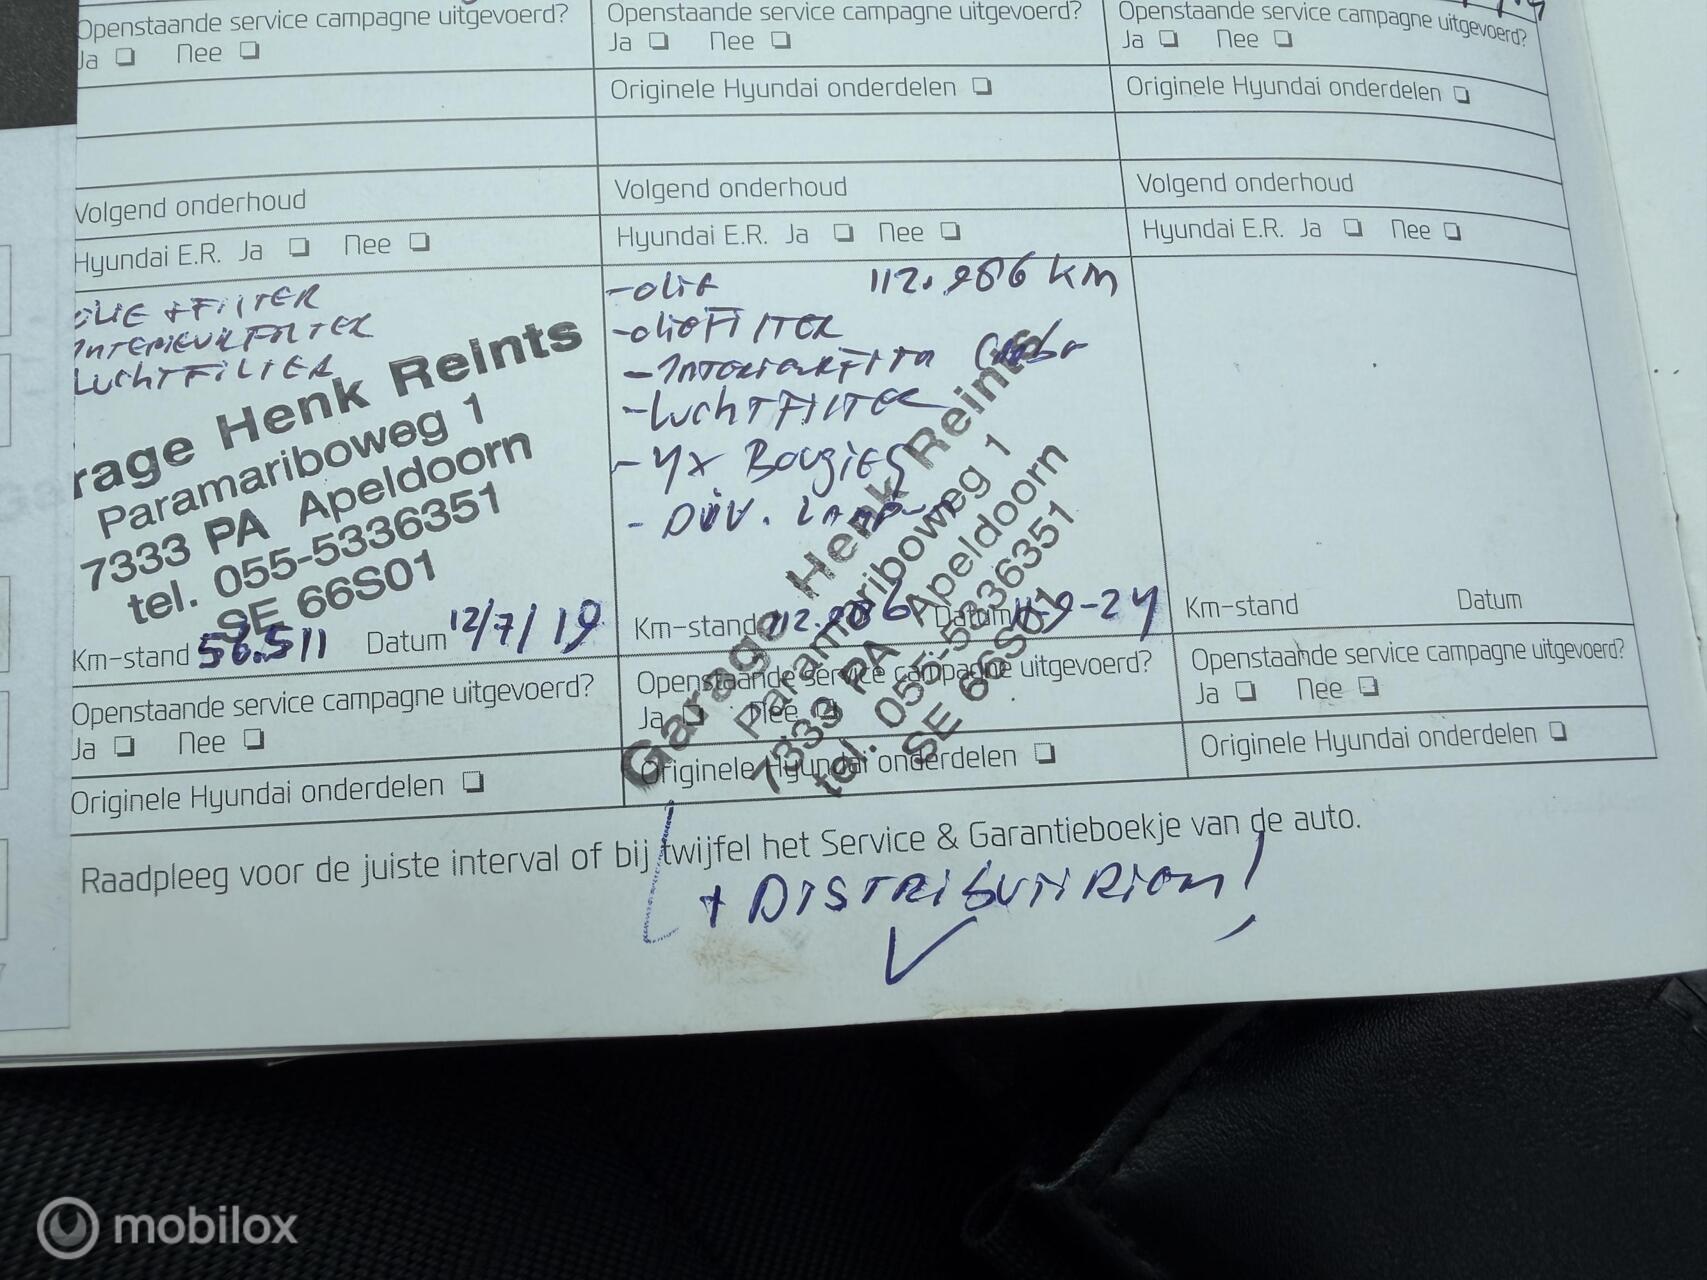 Openstaande service campagne uitgevoerd?
Ja Nee
Volgend onderhoud
Hyundai E.R. Ja Nee
OLIE + FILTER
INTERIEURFILTER
LUCHTFILTER
rage Henk Reints
Paramariboweg 1
7333 PA Apeldoorn
tel. 055-5336351
SE 66S01
Km-stand 56.511 Datum 12/7/19
Openstaande service campagne uitgevoerd?
Ja Nee
Originele Hyundai onderdelen
Openstaande service campagne uitgevoerd?
Ja Nee
Originele Hyundai onderdelen
Volgend onderhoud
Hyundai E.R. Ja Nee
-olie 112.286 km
-olieFILTER
-LUCHTFILTER
-4x Bougies
- DIV.
Garage Henk Reints
Paramariboweg 1
7333 PA Apeldoorn
tel. 055-5336351
SE 66S01
Km-stand 112.286 Datum 11-9-24
Openstaande service campagne uitgevoerd?
Ja Nee
Originele Hyundai onderdelen
Openstaande service campagne uitgevoerd?
Ja Nee
Originele Hyundai onderdelen
Volgend onderhoud
Hyundai E.R. Ja Nee
Km-stand Datum
Openstaande service campagne uitgevoerd?
Ja Nee
Originele Hyundai onderdelen
Raadpleeg voor de juiste interval of bij twijfel het Service & Garantieboekje van de auto.
+ DISTRIBUTIRIEM!
mobilox